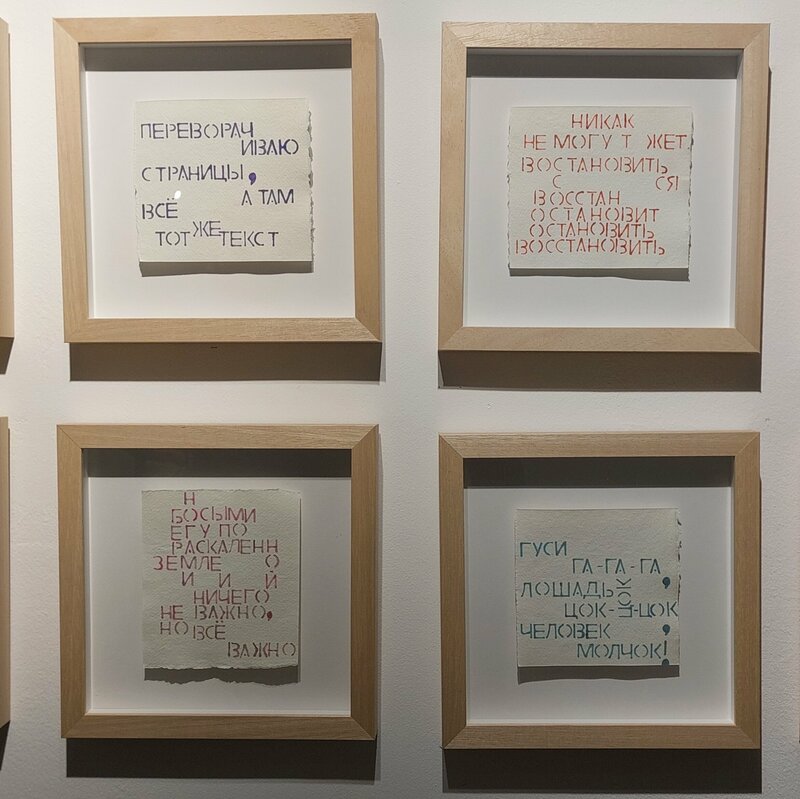 ПЕРЕВОРАЧ
ИВАЮ
СТРАНИЦЫ,
А ТАМ
ВСЁ
ЖЕ
ТОТ ТЕКСТ
НИКАК
НЕ МОГУ Т ЖЕТ
ВОСТАНОВИТЬ
С СЯ
ВОССТАН
ОСТАНОВИТ
ОСТАНОВИТЬ
ВОССТАНОВИТЬ
Н
БОСЫМИ
ЕГУ ПО
РАСКАЛЕНН
ЗЕМЛЕ О
И И Й
НИЧЕГО
НЕ ВАЖНО,
НО ВСЁ
ВАЖНО
ГУСИ
ГА-ГА-ГА,
ЛОШАДЬ
ЦОК-ЦОК-ЦОК,
ЧЕЛОВЕК
МОЛЧОК!